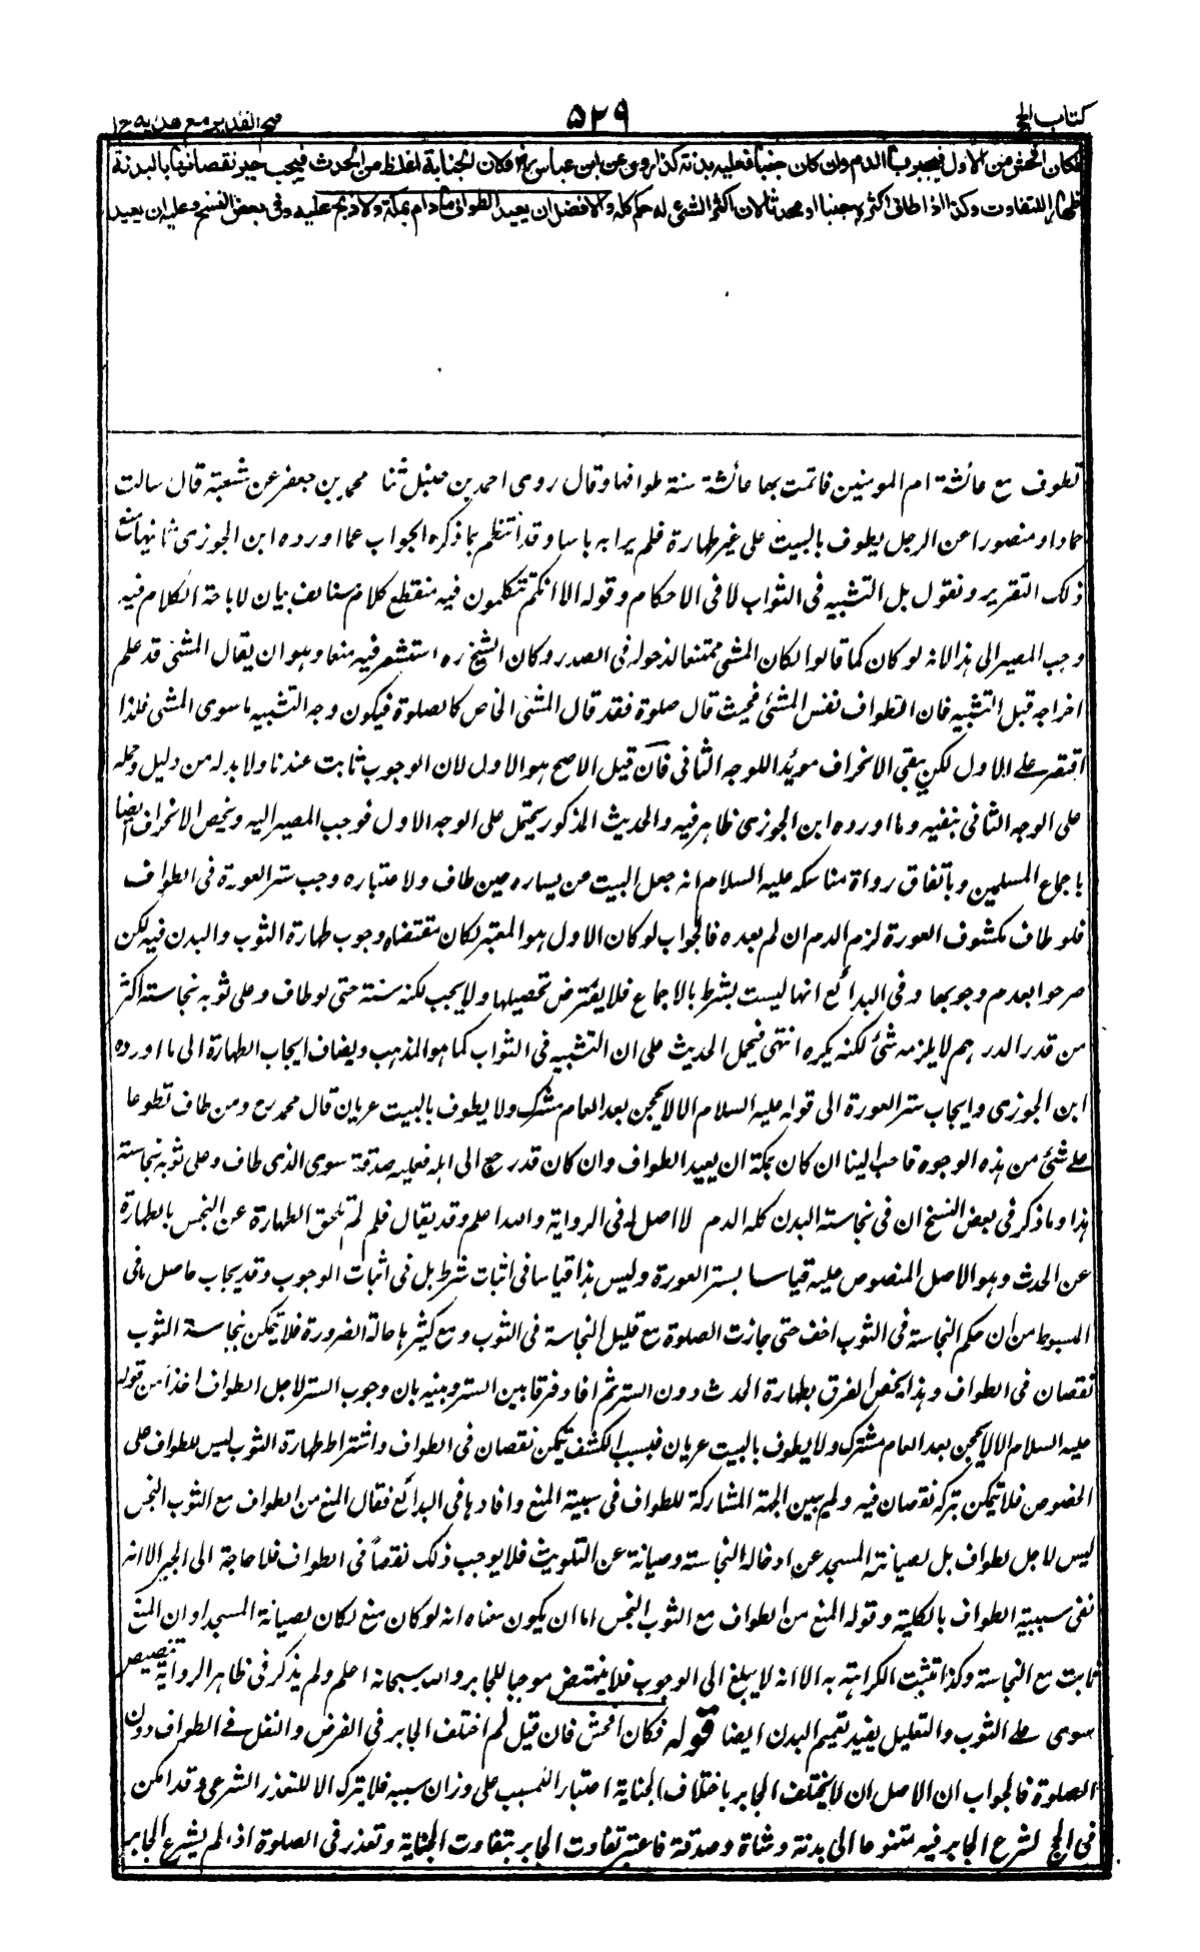 كتاب الحج
۵۲۹
فتح القدير مع هدايه ج ١
فكان افحش من الاول فيجبر بالدم وان كان جنبا فعليه بدنة كذا روى عن ابن عباس رض فكان الجنابة اغلظ من الحدث فيجب جبر نقصانها بالبدنة
اظهارا للتفاوت وكذا اذا طاف اكثره جنبا او محدثا لان اكثر الشئ له حكم كله والافضل ان يعيد الطواف مادام بمكة ولا ذبح عليه وفى بعض النسخ وعليه ان يعيد
تطوف مع عائشة ام المومنين فاتمت بها عائشة سنة طوافها وقال روى احمد بن حنبل ثنا محمد بن جعفر عن شعبة قال سالت
حمادا ومنصورا عن الرجل يطوف بالبيت على غير طهارة فلم يرا به باسا وقد انتظم بما ذكره الجواب عما اورده ابن الجوزى ثانيها منع
ذلك التقرير ونقول بل التشبيه فى الثواب لا فى الاحكام وقوله الا انكم تتكلمون فيه منقطع كلام مستانف بيان لاباحة الكلام فيه
وجب المصير الى هذا لانه لو كان كما قالوا لكان المشى ممتنعا لدخوله فى الصدر وكان الشيخ ره استشعر فيه منعا وهو ان يقال المشى قد علم
اخراجه قبل التشبيه فان الطواف نفس المشئ فحيث قال صلوة فقد قال المشى الخاص كالصلوة فيكون وجه التشبيه ما سوى المشى فلذا
اقتصر على الاول لكن يبقى الانحراف مؤيدا للوجه الثانى فان قيل الاصح هو الاول لان الوجوب ثابت عندنا ولا بد له من دليل وحمله
على الوجه الثانى ينفيه وما اورده ابن الجوزى ظاهر فيه والحديث المذكور يحتمل على الوجه الاول فوجب المصير اليه ونخص الانحراف ايضا
باجماع المسلمين وباتفاق رواة مناسكه عليه السلام انه جعل البيت عن يساره حين طاف ولاعتباره وجب ستر العورة فى الطواف
فلو طاف مكشوف العورة لزم الدم ان لم يعده فالجواب لو كان الاول هو المعتبر لكان مقتضاه وجوب طهارة الثوب والبدن فيه لكن
صرحوا بعدم وجوبها وفى البدائع انها ليست بشرط بالاجماع فلا يفترض تحصيلها ولا يجب لكنه سنة حتى لو طاف وعلى ثوبه نجاسة اكثر
من قدر الدرهم لا يلزمه شئ لكنه يكره انتهى فيحمل الحديث على ان التشبيه فى الثواب كما هو المذهب ويضاف ايجاب الطهارة الى ما اورده
ابن الجوزى وايجاب ستر العورة الى قوله عليه السلام الا لا يحجن بعد العام مشرك ولا يطوف بالبيت عريان قال محمد رح ومن طاف تطوعا
على شئ من هذه الوجوه فاحب الينا ان كان بمكة ان يعيد الطواف وان كان قد رجع الى اهله فعليه صدقة سوى الذى طاف وعلى ثوبه نجاسة
هذا وما ذكر فى بعض النسخ ان فى نجاسة البدن كله الدم لا اصل له فى الرواية والله اعلم وقد يقال فلم لم تلحق الطهارة عن النجس بالطهارة
عن الحدث وهو الاصل المنصوص عليه قياسا بستر العورة وليس هذا قياسا فى اثبات شرط بل فى اثبات الوجوب وقد يجاب حاصل ما فى
المبسوط من ان حكم النجاسة فى الثوب اخف حتى جازت الصلوة مع قليل النجاسة فى الثوب ومع كثيرها حالة الضرورة فلا يتمكن بنجاسة الثوب
نقصان فى الطواف وهذا يخص الفرق بطهارة الحدث دون الستر ثم افاد فرقا بين الستر وبينه بان وجوب الستر لاجل الطواف اخذا من قوله
عليه السلام الا لا يحجن بعد العام مشرك ولا يطوف بالبيت عريان فبسبب الكشف يتمكن نقصان فى الطواف واشتراط طهارة الثوب ليس للطواف على
الخصوص فلا يتمكن بتركه نقصان فيه ولم يبين الجهة المشاركة للطواف فى سببية المنع وافادها فى البدائع فقال المنع من الطواف مع الثوب النجس
ليس لاجل الطواف بل لصيانة المسجد عن ادخاله النجاسة وصيانة عن التلويث فلا يوجب ذلك نقصاً فى الطواف فلا حاجة الى الجبر الا انه
نفى سببية الطواف بالكلية وقوله المنع من الطواف مع الثوب النجس اما ان يكون معناه انه لو كان منع لكان لصيانة المسجد او ان المنع
ثابت مع النجاسة وكذا تثبت الكراهة به الا انه لا يبلغ الى الوجوب فلا ينتهض موجبا للجابر والله سبحانه اعلم ولم يذكر فى ظاهر الرواية تنصيص
سوى على الثوب والتعليل يفيد تعميم البدن ايضا قوله فكان افحش فان قيل لم اختلف الجابر فى الفرض والنفل فى الطواف دون
الصلوة فالجواب ان الاصل ان لا يختلف الجابر باختلاف الجناية اعتبار المسبب على وزان سببه فلا يترك الا للتعذر الشرعى وقد امكن
فى الحج لشرع الجابر فيه متنوعا الى بدنة وشاة وصدقة فاعتبر تفاوت الجابر بتفاوت الجناية وتعذر فى الصلوة اذ لم يشرع الجابر